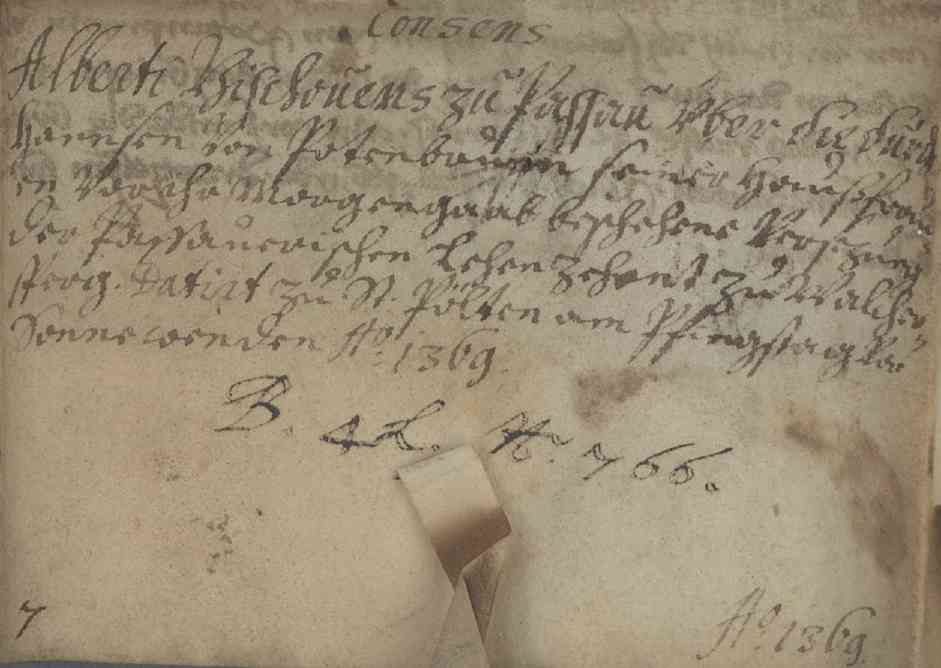 Consens
Alberti Bischouens zu Passau yber die durch
Hannsen von Potenbrunn seiner Haussfraw
en vor ihr Morgengaab beschehene Versezung
der Passauerischen Lehen Zehent zu Walchen
sterg. Datirt zu St. Pölten am Pfingstag vor
Sonnewenden Ao. 1369.
B. 42. No. 766.
7
Ao. 1369